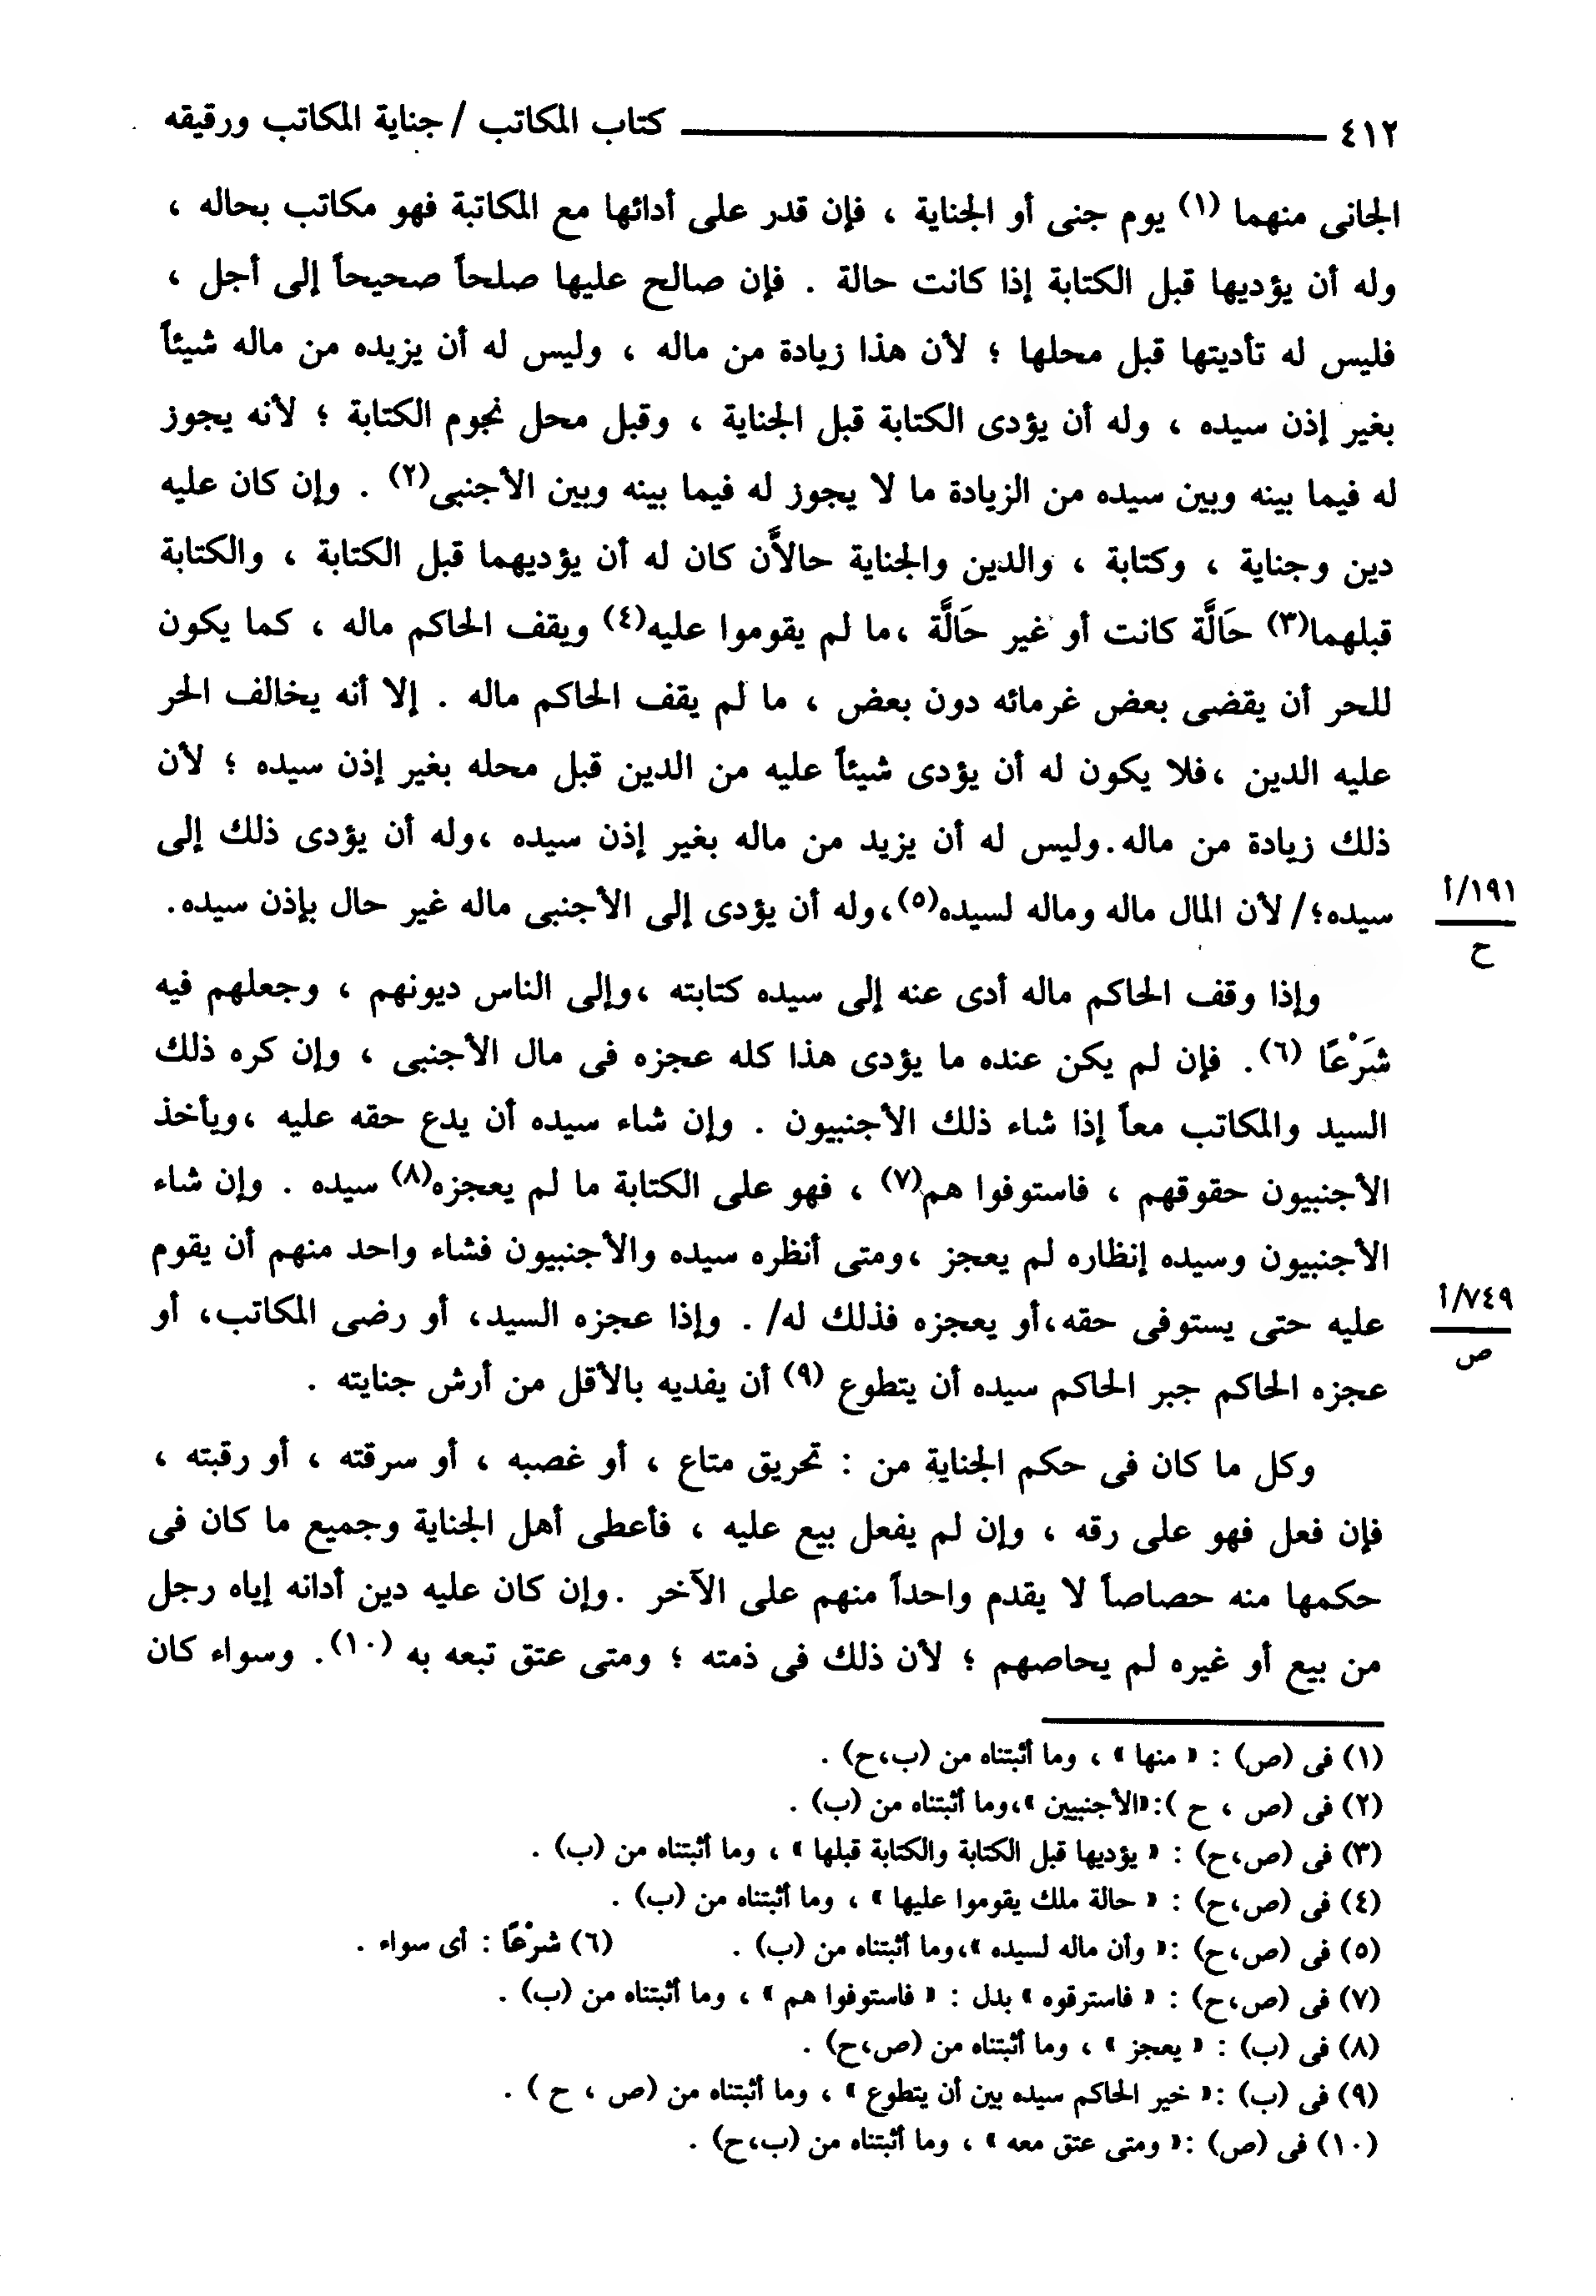 ٤١٢ ــــــــ كتاب المكاتب / جناية المكاتب ورقيقه
الجانى منهما (١) يوم جنى أو الجناية ، فإن قدر على أدائها مع المكاتبة فهو مكاتب بحاله ،
وله أن يؤديها قبل الكتابة إذا كانت حالة . فإن صالح عليها صلحاً صحيحاً إلى أجل ،
فليس له تأديتها قبل محلها ؛ لأن هذا زيادة من ماله ، وليس له أن يزيده من ماله شيئاً
بغير إذن سيده ، وله أن يؤدى الكتابة قبل الجناية ، وقبل محل نجوم الكتابة ؛ لأنه يجوز
له فيما بينه وبين سيده من الزيادة ما لا يجوز له فيما بينه وبين الأجنبى(٢) . وإن كان عليه
دين وجناية ، وكتابة ، والدين والجناية حالاَّن كان له أن يؤديهما قبل الكتابة ، والكتابة
قبلهما(٣) حَالَّة كانت أو غير حَالَّة ،ما لم يقوموا عليه(٤) ويقف الحاكم ماله ، كما يكون
للحر أن يقضى بعض غرمائه دون بعض ، ما لم يقف الحاكم ماله . إلا أنه يخالف الحر
عليه الدين ،فلا يكون له أن يؤدى شيئاً عليه من الدين قبل محله بغير إذن سيده ؛ لأن
ذلك زيادة من ماله.وليس له أن يزيد من ماله بغير إذن سيده ،وله أن يؤدى ذلك إلى
سيده؛/ لأن المال ماله وماله لسيده(٥)،وله أن يؤدى إلى الأجنبى ماله غير حال بإذن سيده.
١٩١/أ
ح
وإذا وقف الحاكم ماله أدى عنه إلى سيده كتابته ،وإلى الناس ديونهم ، وجعلهم فيه
شَرْعًا (٦). فإن لم يكن عنده ما يؤدى هذا كله عجزه فى مال الأجنبى ، وإن كره ذلك
السيد والمكاتب معاً إذا شاء ذلك الأجنبيون . وإن شاء سيده أن يدع حقه عليه ،ويأخذ
الأجنبيون حقوقهم ، فاستوفوا هم(٧) ، فهو على الكتابة ما لم يعجزه(٨) سيده . وإن شاء
الأجنبيون وسيده إنظاره لم يعجز ،ومتى أنظره سيده والأجنبيون فشاء واحد منهم أن يقوم
عليه حتى يستوفى حقه،أو يعجزه فذلك له/ . وإذا عجزه السيد، أو رضى المكاتب، أو
٧٤٩/أ
ص
عجزه الحاكم جبر الحاكم سيده أن يتطوع (٩) أن يفديه بالأقل من أرش جنايته .
وكل ما كان فى حكم الجناية من : تحريق متاع ، أو غصبه ، أو سرقته ، أو رقبته ،
فإن فعل فهو على رقه ، وإن لم يفعل بيع عليه ، فأعطى أهل الجناية وجميع ما كان فى
حكمها منه حصاصاً لا يقدم واحداً منهم على الآخر .وإن كان عليه دين أدانه إياه رجل
من بيع أو غيره لم يحاصهم ؛ لأن ذلك فى ذمته ؛ ومتى عتق تبعه به (١٠). وسواء كان
(١) فى (ص) : « منها » ، وما أثبتناه من (ب،ح) .
(٢) فى (ص ، ح ):«الأجنبيين »،وما أثبتناه من (ب) .
(٣) فى (ص،ح) : « يؤديها قبل الكتابة والكتابة قبلها » ، وما أثبتناه من (ب) .
(٤) فى (ص،ح) : « حالة ملك يقوموا عليها » ، وما أثبتناه من (ب) .
(٥) فى (ص،ح) :« وأن ماله لسيده »،وما أثبتناه من (ب) . (٦) شرْعًا : أى سواء .
(٧) فى (ص،ح) : « فاسترقوه » بدل : « فاستوفوا هم » ، وما أثبتناه من (ب) .
(٨) فى (ب) : « يعجز » ، وما أثبتناه من (ص،ح) .
(٩) فى (ب) :« خير الحاكم سيده بين أن يتطوع » ، وما أثبتناه من (ص ، ح ) .
(١٠) فى (ص) :« ومتى عتق معه » ، وما أثبتناه من (ب،ح) .